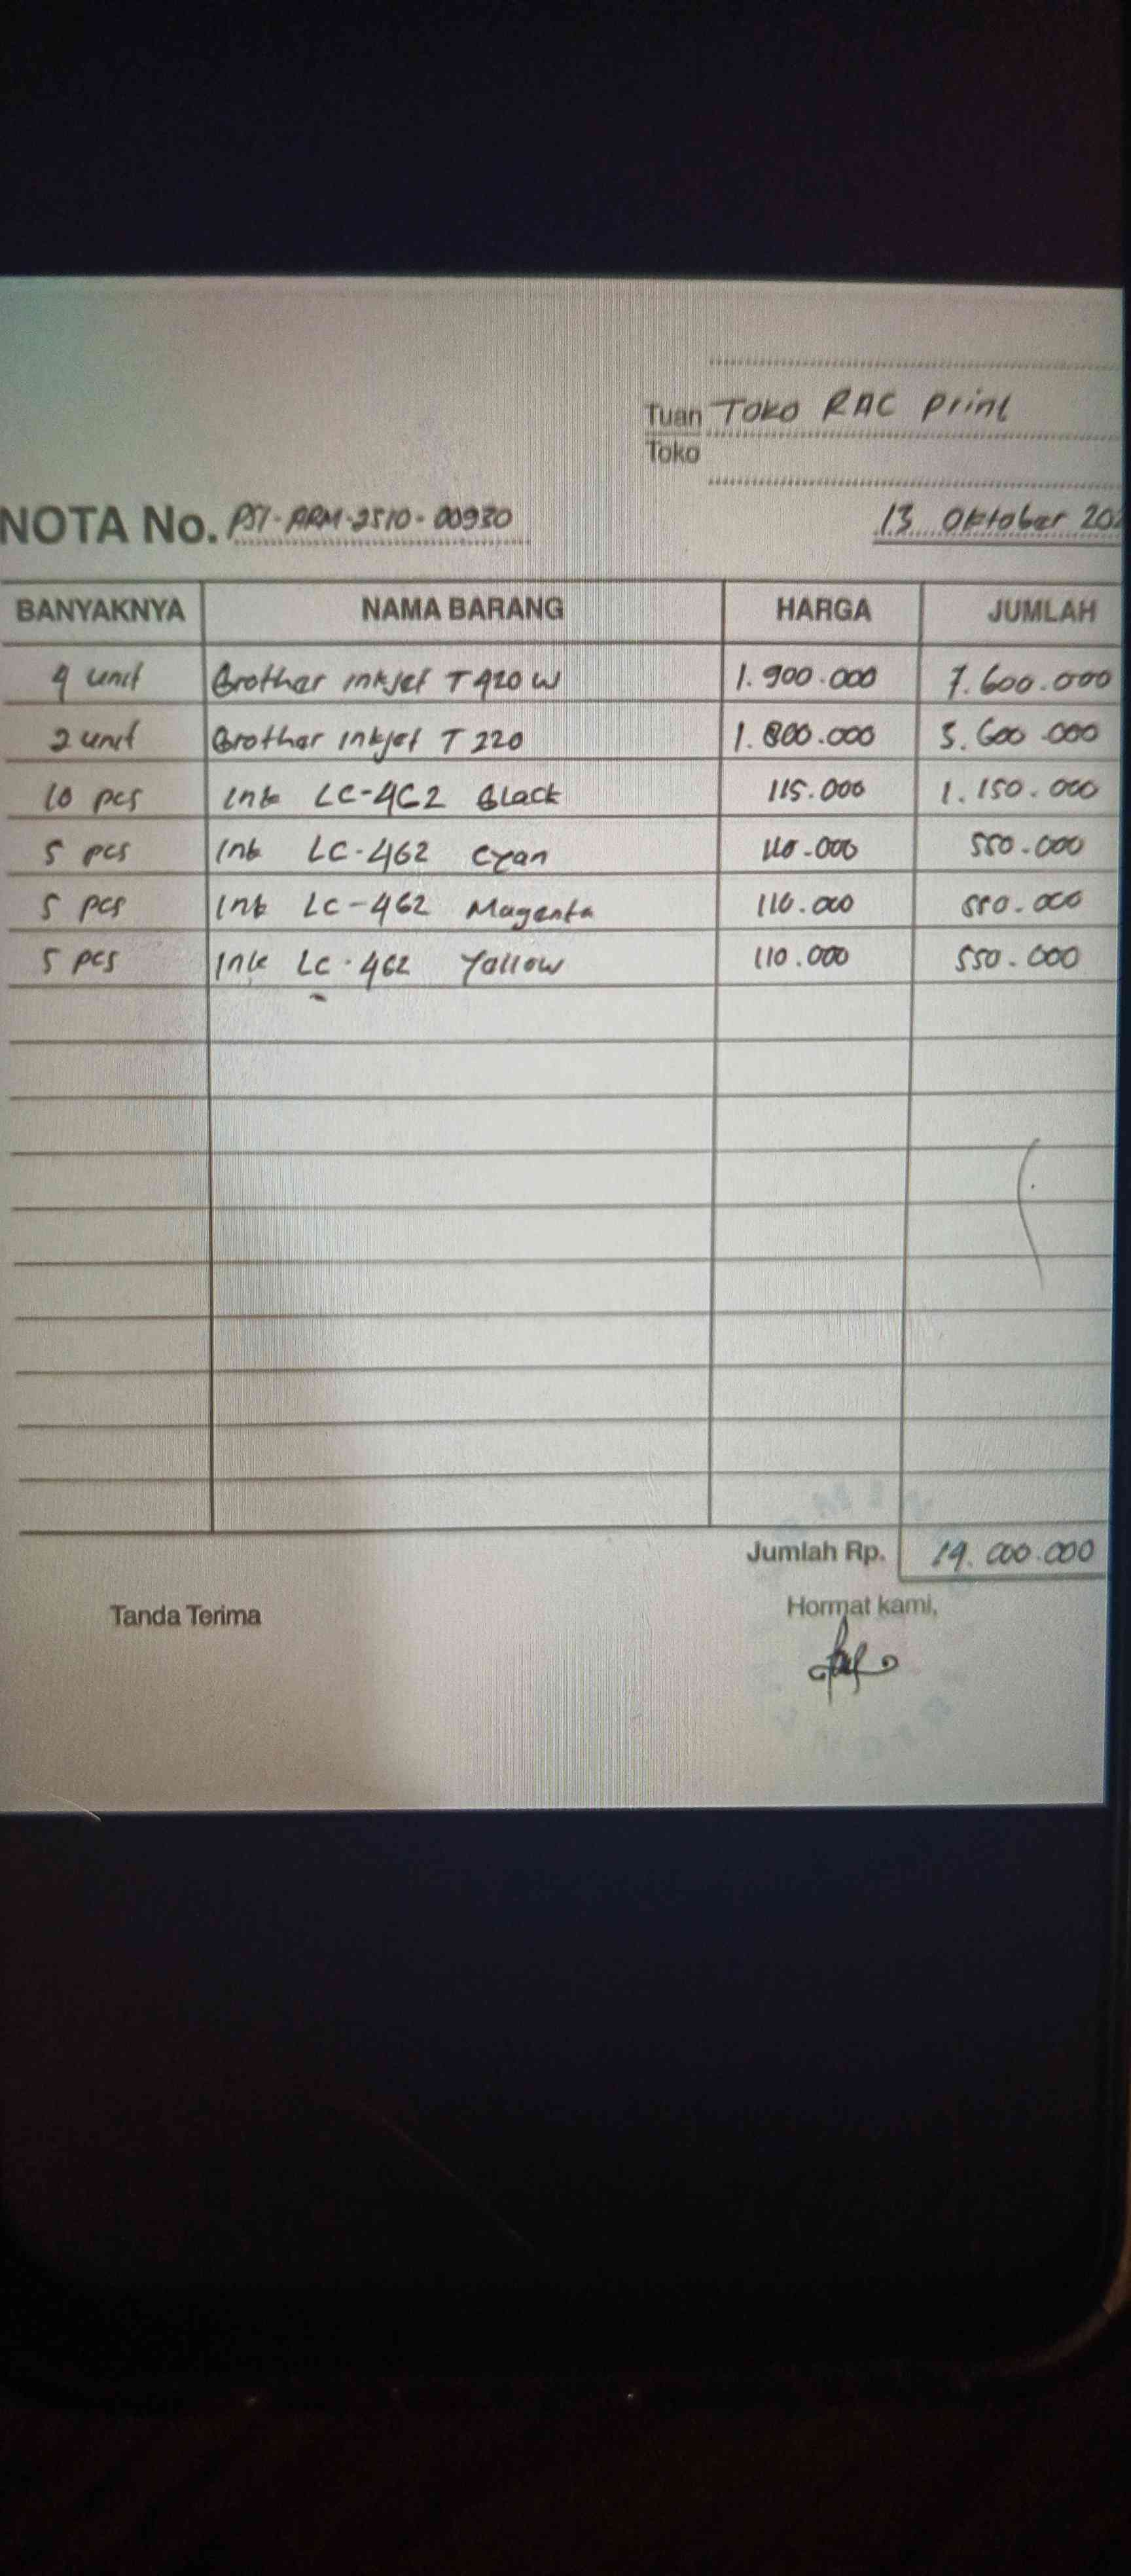 Tuan Toko RAC Print
Toko
NOTA No. PSI-ARM-2510-00930
13 Oktober 202
BANYAKNYA NAMA BARANG HARGA JUMLAH
4 unit Brother inkjet T420W 1.900.000 7.600.000
2 unit Brother inkjet T220 1.800.000 3.600.000
10 pcs Ink LC-462 Black 115.000 1.150.000
5 pcs Ink LC-462 Cyan 110.000 550.000
5 pcs Ink LC-462 Magenta 110.000 550.000
5 pcs Ink LC-462 Yallow 110.000 550.000
Jumlah Rp. 14.000.000
Tanda Terima Hormat kami,